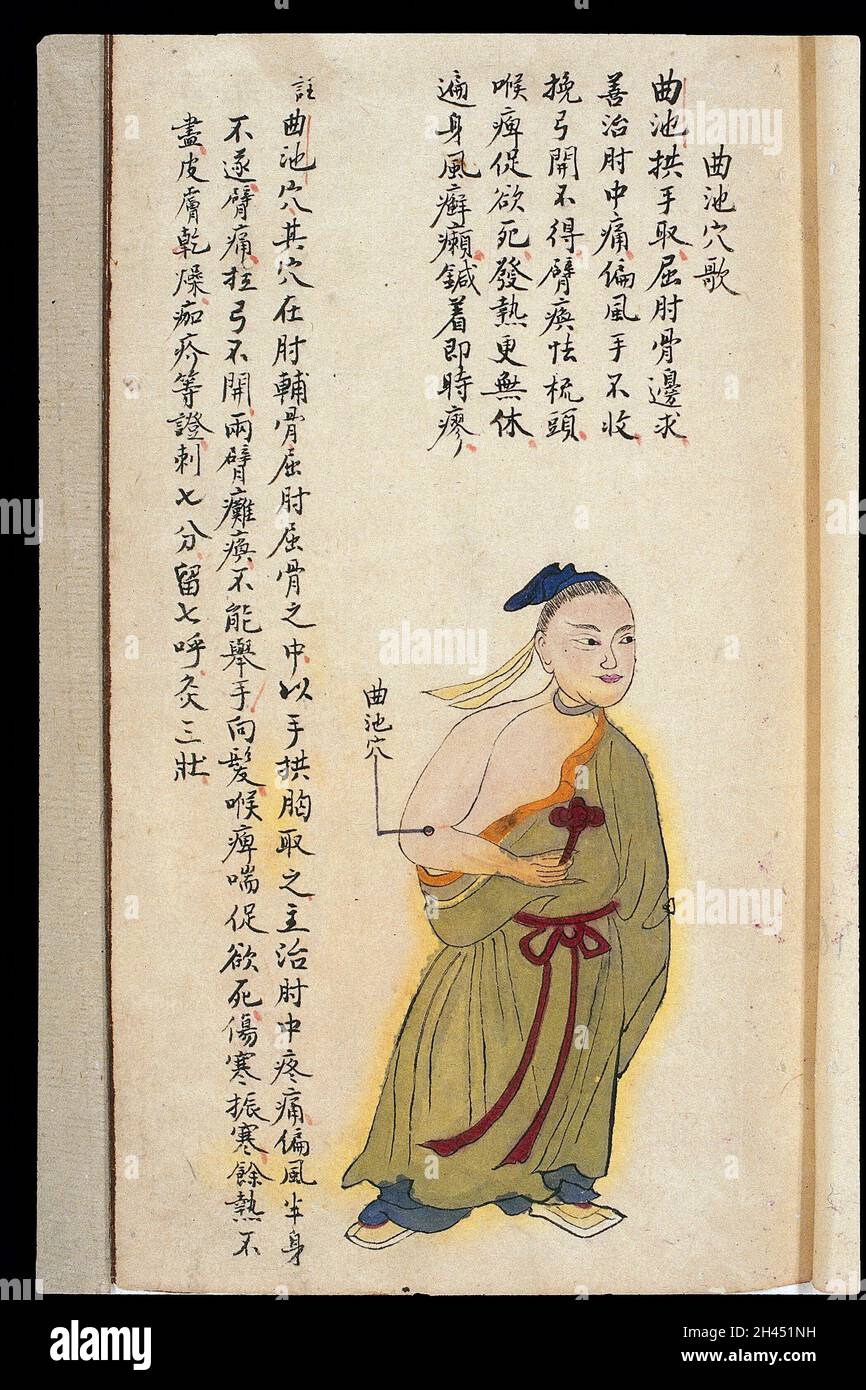 曲池穴歌
曲池拱手取屈肘骨邊求
善治肘中痛偏風手不收
挽弓開不得臂瘓怯梳頭
喉痺促欲死發熱更無休
遍身風癬癩鍼着即時瘳
註曲池穴其穴在肘輔骨屈肘屈骨之中以手拱胸取之主治肘中疼痛偏風半身
不遂臂痛拉弓不開兩臂癱瘓不能舉手向髮喉痺喘促欲死傷寒振寒餘熱不
盡皮膚乾燥痂疥等證刺七分留七呼灸三壯
曲池穴
alamy
Image ID: 2H451NH
www.alamy.com